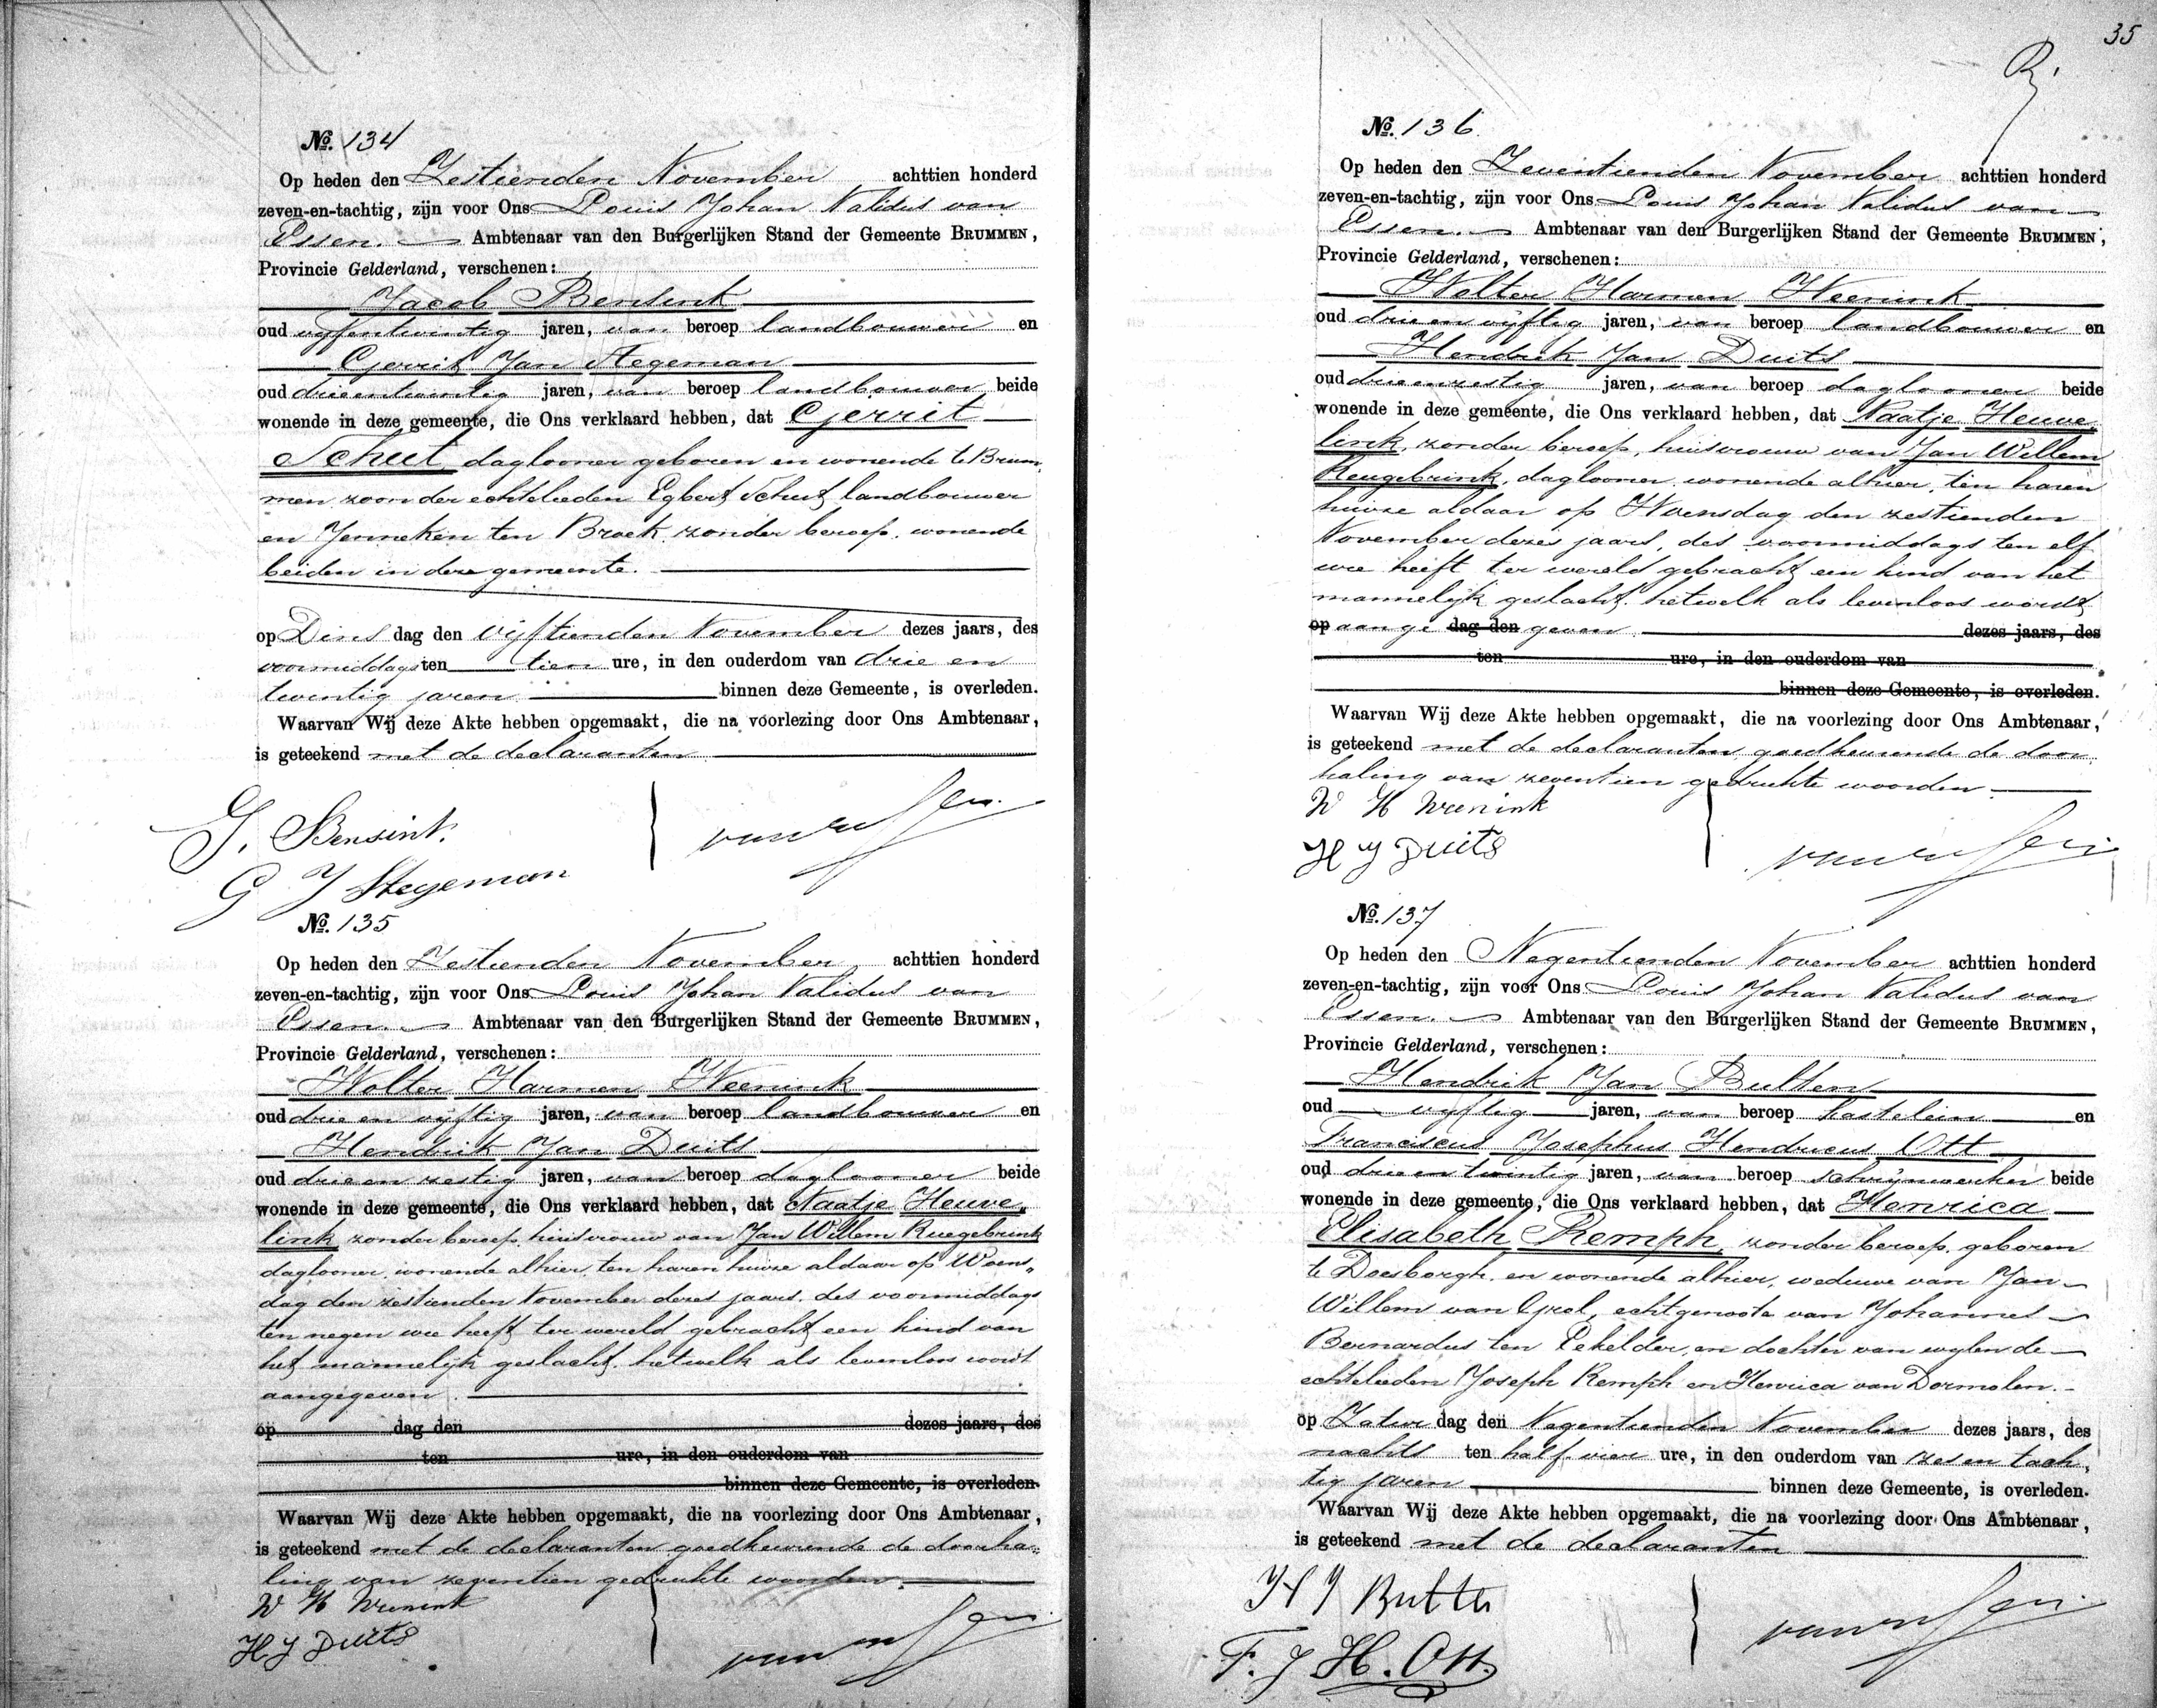 No. 134
Op heden den Zestienden November achttien honderd
zeven-en-tachtig, zijn voor Ons Louis Johan Validus van
Essen. Ambtenaar van den Burgerlijken Stand der Gemeente BRUMMEN,
Provincie Gelderland, verschenen:
Jacob Bensink
oud vijfentwintig jaren, van beroep landbouwer en
Gerrit Jan Stegeman
oud drieentwintig jaren, van beroep landbouwer beide
wonende in deze gemeente, die Ons verklaard hebben, dat Gerrit
Schut daglooner geboren en wonende te Brum„
men zoon der echtelieden Egbert Schut landbouwer
en Jenneken ten Broek zonder beroep, wonende
beiden in deze gemeente.
op Dinsdag den vijftienden November dezes jaars, des
voormiddags ten tien ure, in den ouderdom van drie en
twintig jaren binnen deze Gemeente, is overleden.
Waarvan Wij deze Akte hebben opgemaakt, die na voorlezing door Ons Ambtenaar,
is geteekend met de declaranten
J. Bensink.
van Essen.
G J Stegeman
No. 135
Op heden den Zestienden November achttien honderd
zeven-en-tachtig, zijn voor Ons Louis Johan Validus van
Essen. Ambtenaar van den Burgerlijken Stand der Gemeente BRUMMEN,
Provincie Gelderland, verschenen:
Wolter Harmen Weenink
oud drie en vijftig jaren, van beroep landbouwer en
Hendrik Jan Duits
oud drie en zestig jaren, van beroep daglooner beide
wonende in deze gemeente, die Ons verklaard hebben, dat Naatje Heuve„
link zonder beroep, huisvrouw van Jan Willem Ruegebrink
daglooner, wonende alhier, ten haren huize aldaar op Woens„
dag den zestienden November dezes jaars, des voormiddags
ten negen ure heeft ter wereld gebracht een kind van
het mannelijk geslacht, hetwelk als levenloos wordt
aangegeven.
op dag den dezes jaars, des
ten ure, in den ouderdom van
binnen deze Gemeente, is overleden.
Waarvan Wij deze Akte hebben opgemaakt, die na voorlezing door Ons Ambtenaar,
is geteekend met de declaranten goedkeurende de doorha„
ling van zeventien gedrukte woorden.
W H Weenink
H J Duits
van Essen.
35
No. 136
Op heden den Zeventienden November achttien honderd
zeven-en-tachtig, zijn voor Ons Louis Johan Validus van
Essen. Ambtenaar van den Burgerlijken Stand der Gemeente BRUMMEN,
Provincie Gelderland, verschenen:
Wolter Harmen Weenink
oud drie en vijftig jaren, van beroep landbouwer en
Hendrik Jan Duits
oud drieenzestig jaren, van beroep daglooner beide
wonende in deze gemeente, die Ons verklaard hebben, dat Naatje Heuve„
link, zonder beroep, huisvrouw van Jan Willem
Reugebrink, daglooner, wonende alhier, ten haren
huize aldaar op Woensdag den zestienden
November dezes jaars, des voormiddags ten elf
ure heeft ter wereld gebracht een kind van het
mannelijk geslacht, hetwelk als levenloos wordt
op aange dag den geven dezes jaars, des
ten ure, in den ouderdom van
binnen deze Gemeente, is overleden.
Waarvan Wij deze Akte hebben opgemaakt, die na voorlezing door Ons Ambtenaar,
is geteekend met de declaranten, goedkeurende de door„
haling van zeventien gedrukte woorden.
W H Weenink
H J Duits
van Essen.
No. 137
Op heden den Negentienden November achttien honderd
zeven-en-tachtig, zijn voor Ons Louis Johan Validus van
Essen. Ambtenaar van den Burgerlijken Stand der Gemeente BRUMMEN,
Provincie Gelderland, verschenen:
Hendrik Jan Bulten
oud vijftig jaren, van beroep kastelein en
Franciscus Josephus Hendricus Ott
oud drie en twintig jaren, van beroep schrijnwerker beide
wonende in deze gemeente, die Ons verklaard hebben, dat Henrica
Elisabeth Remph, zonder beroep, geboren
te Doesborgh, en wonende alhier, weduwe van Jan
Willem van echtgenoote van Johannes
Bernardus ten Pekelder, en dochter van wylen de
echtelieden Joseph Remph en Henrica van Dormolen.
op Zaturdag den Negentienden November dezes jaars, des
nachts ten half vier ure, in den ouderdom van zes en tach„
tig jaren binnen deze Gemeente, is overleden.
Waarvan Wij deze Akte hebben opgemaakt, die na voorlezing door Ons Ambtenaar,
is geteekend met de declaranten
H J Bulten
F. J H. Ott
van Essen.